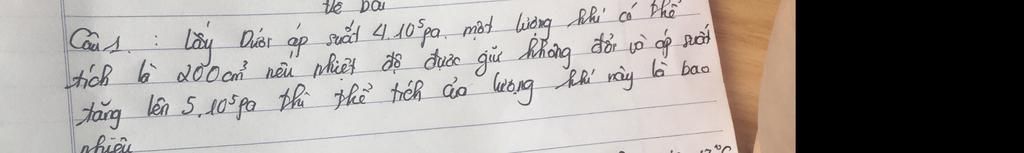 Đề bài
Câu 1. : Lấy Dưới áp suất 4.10⁵pa. một lượng khí có thể
tích là 200cm³ nếu nhiệt độ được giữ không đổi và áp suất
tăng lên 5.10⁵pa thì thể tích của lượng khí này là bao
nhiêu